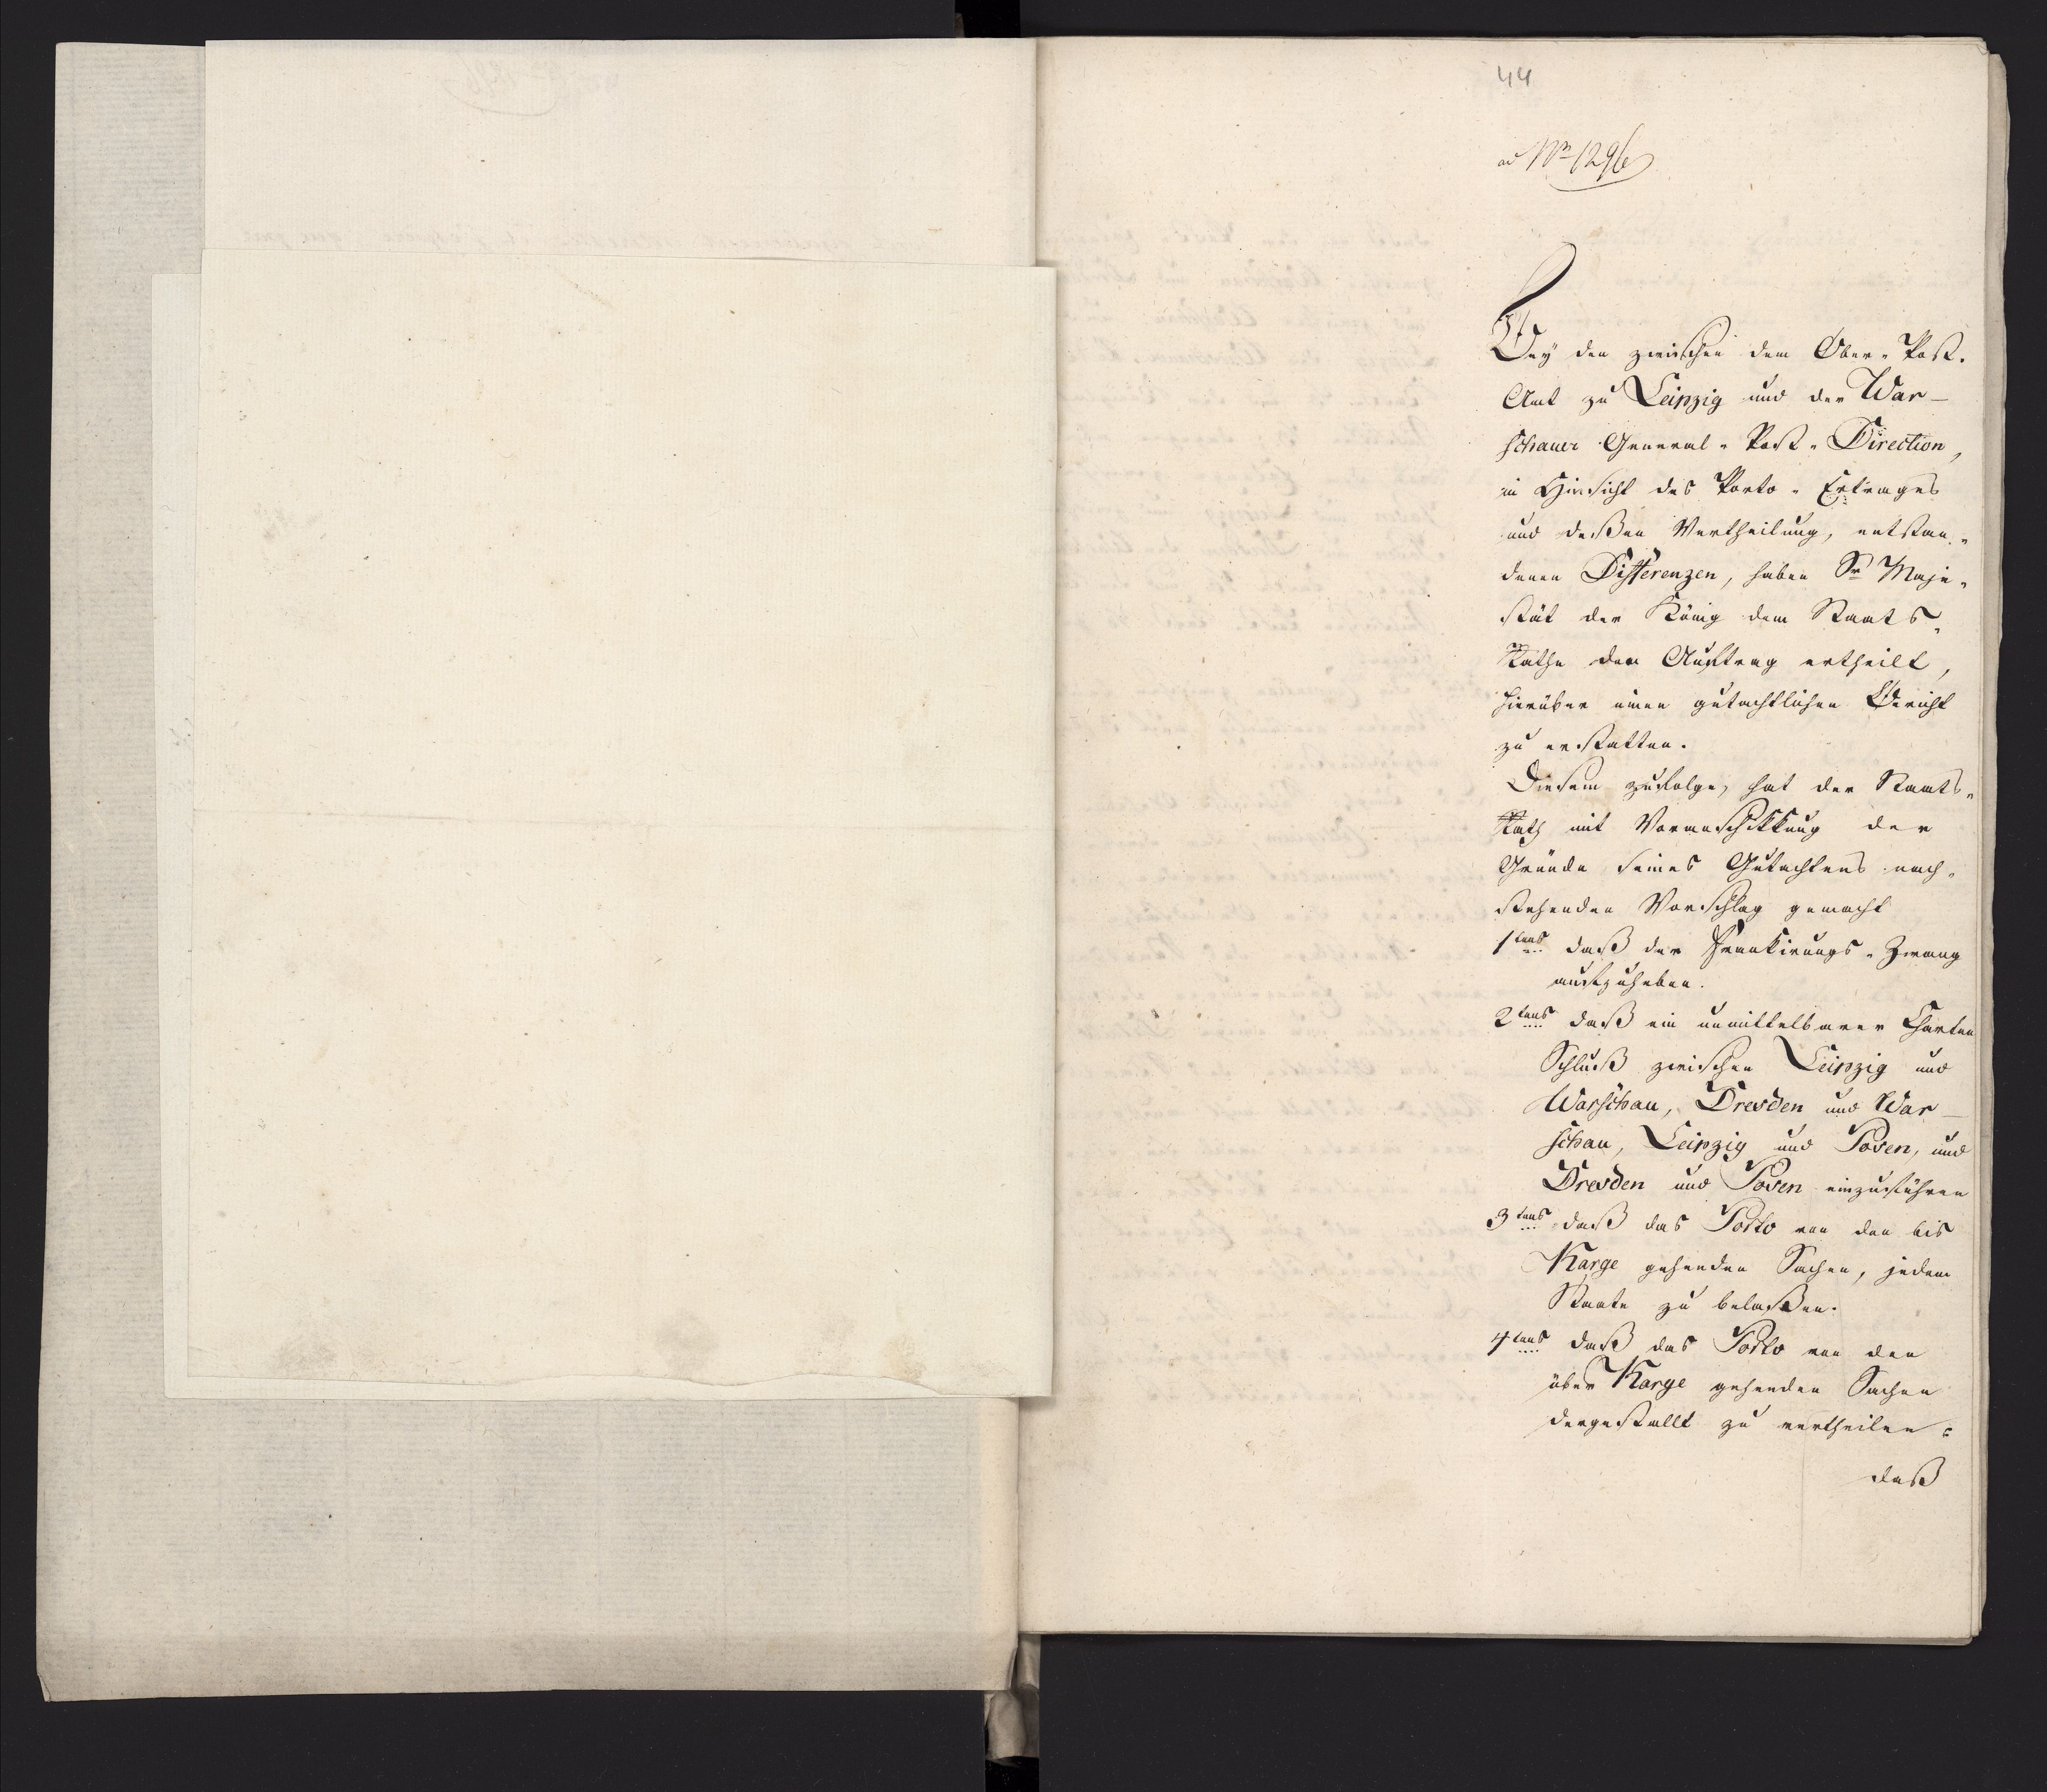 44
ad Nro 1296
Bey den zwischen dem Ober-Post-
Amt zu Leipzig und der War-
schauer General-Post-Direction,
in Hinsicht des Porto-Ertrages
und deßen Vertheilung, entstan-
denen Differenzen, haben Se Maje-
stät der König dem Staats-
Rathe den Auftrag ertheilt,
hierüber einen gutachtlichen Bericht
zu erstatten.
Diesem zufolge, hat der Staats-
Rath mit Voranschikkung der
Gründe seines Gutachtens nach-
stehenden Vorschlag gemacht
1tens daß der Frankirungs-Zwang
aufzuheben.
2tens daß ein unmittelbarer Charten
Schluß zwischen Leipzig und
Warschau, Dresden und War-
schau, Leipzig und Posen, und
Dresden und Posen einzuführen
3tens daß das Porto von den bis
Karge gehenden Sachen, jedem
Staate zu belaßen.
4tens daß das Porto von den
über Karge gehenden Sachen
dergestallt zu vertheilen:
daß